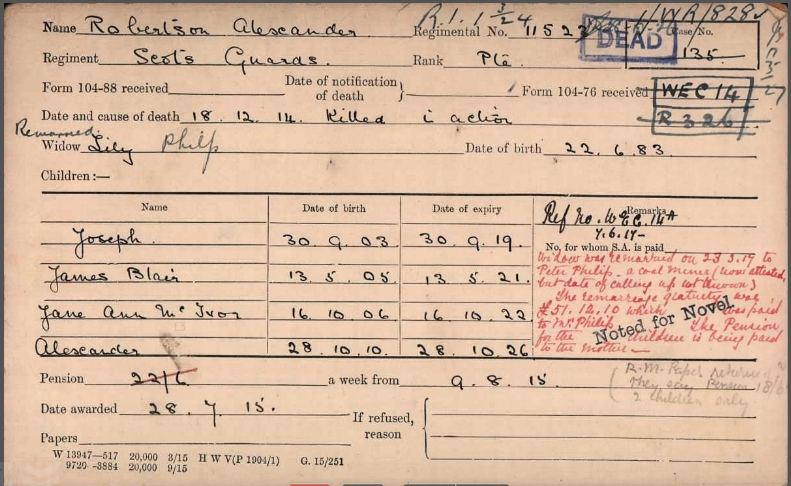 Name Robertson Alexander Regimental No. 11523 DEAD Case No. 135.
R.1. 1 3/24 1/WR/828
Regiment Scots Guards. Rank Pte
Form 104-88 received Date of notification of death } Form 104-76 received WEC 14
R 326
Date and cause of death 18. 12. 14. Killed i action
Remarried
Widow Lily Philp Date of birth 22. 6. 83.
Children:—
Name Date of birth Date of expiry Remarks
Ref No. WEC. 14A
7.6.17-
No, for whom S.A. is paid
Joseph. 30. 9. 03 30. 9. 19.
James Blair 13. 5. 05. 13. 5. 21.
Jane Ann Mc Ivor 16. 10. 06. 16. 10. 22
Alexander 28. 10. 10. 28. 10. 26.
Widow was remarried on 23.3.17 to
Peter Philip - a coal miner (now attested,
but date of calling up not known)
The remarriage gratuity was
£51. 12. 10 which was paid
to Mrs Philip. The Pension
for the children is being paid
to the mother—
Noted for Novel
Pension 22/6 a week from 9. 8. 15.
R.M. Paper
They say Pension 18/6
2 children only
Date awarded 28. 7. 15. If refused, reason
Papers
W 13947—517 20,000 3/15 H W V(P 1904/1) G. 15/251
9720 -3884 20,000 9/15